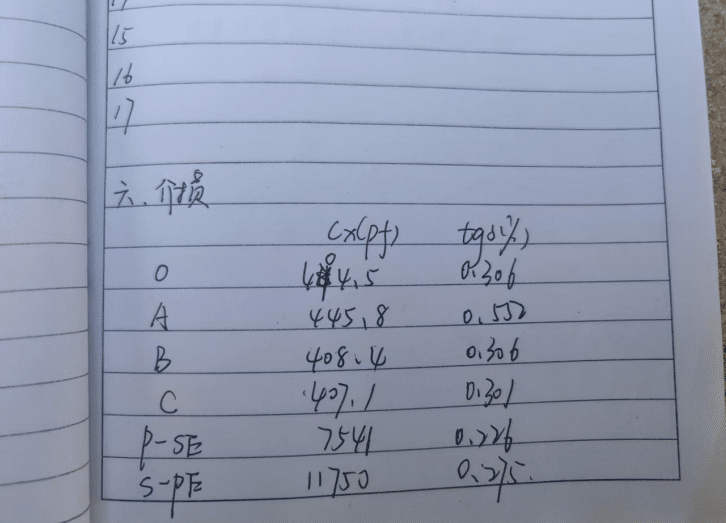 15
16
17
六、介损
Cx(pf) tgδ(%)
O 404.5 0.306
A 445.8 0.552
B 408.4 0.306
C 407.1 0.301
P-SE 7541 0.226
S-PE 11750 0.275